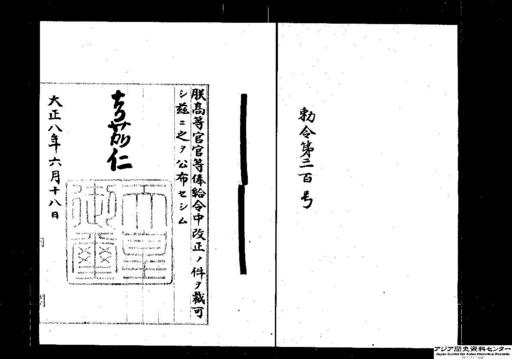 勅令第三百号
朕高等官官等俸給令中改正ノ件ヲ裁可
シ茲ニ之ヲ公布セシム
嘉仁
天皇
御璽
大正八年六月十八日
内閣
アジア歴史資料センター
Japan Center for Asian Historical Records